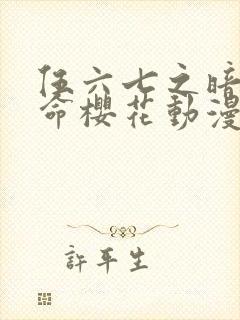 伍六七之暗
命櫻花動漫
許平生